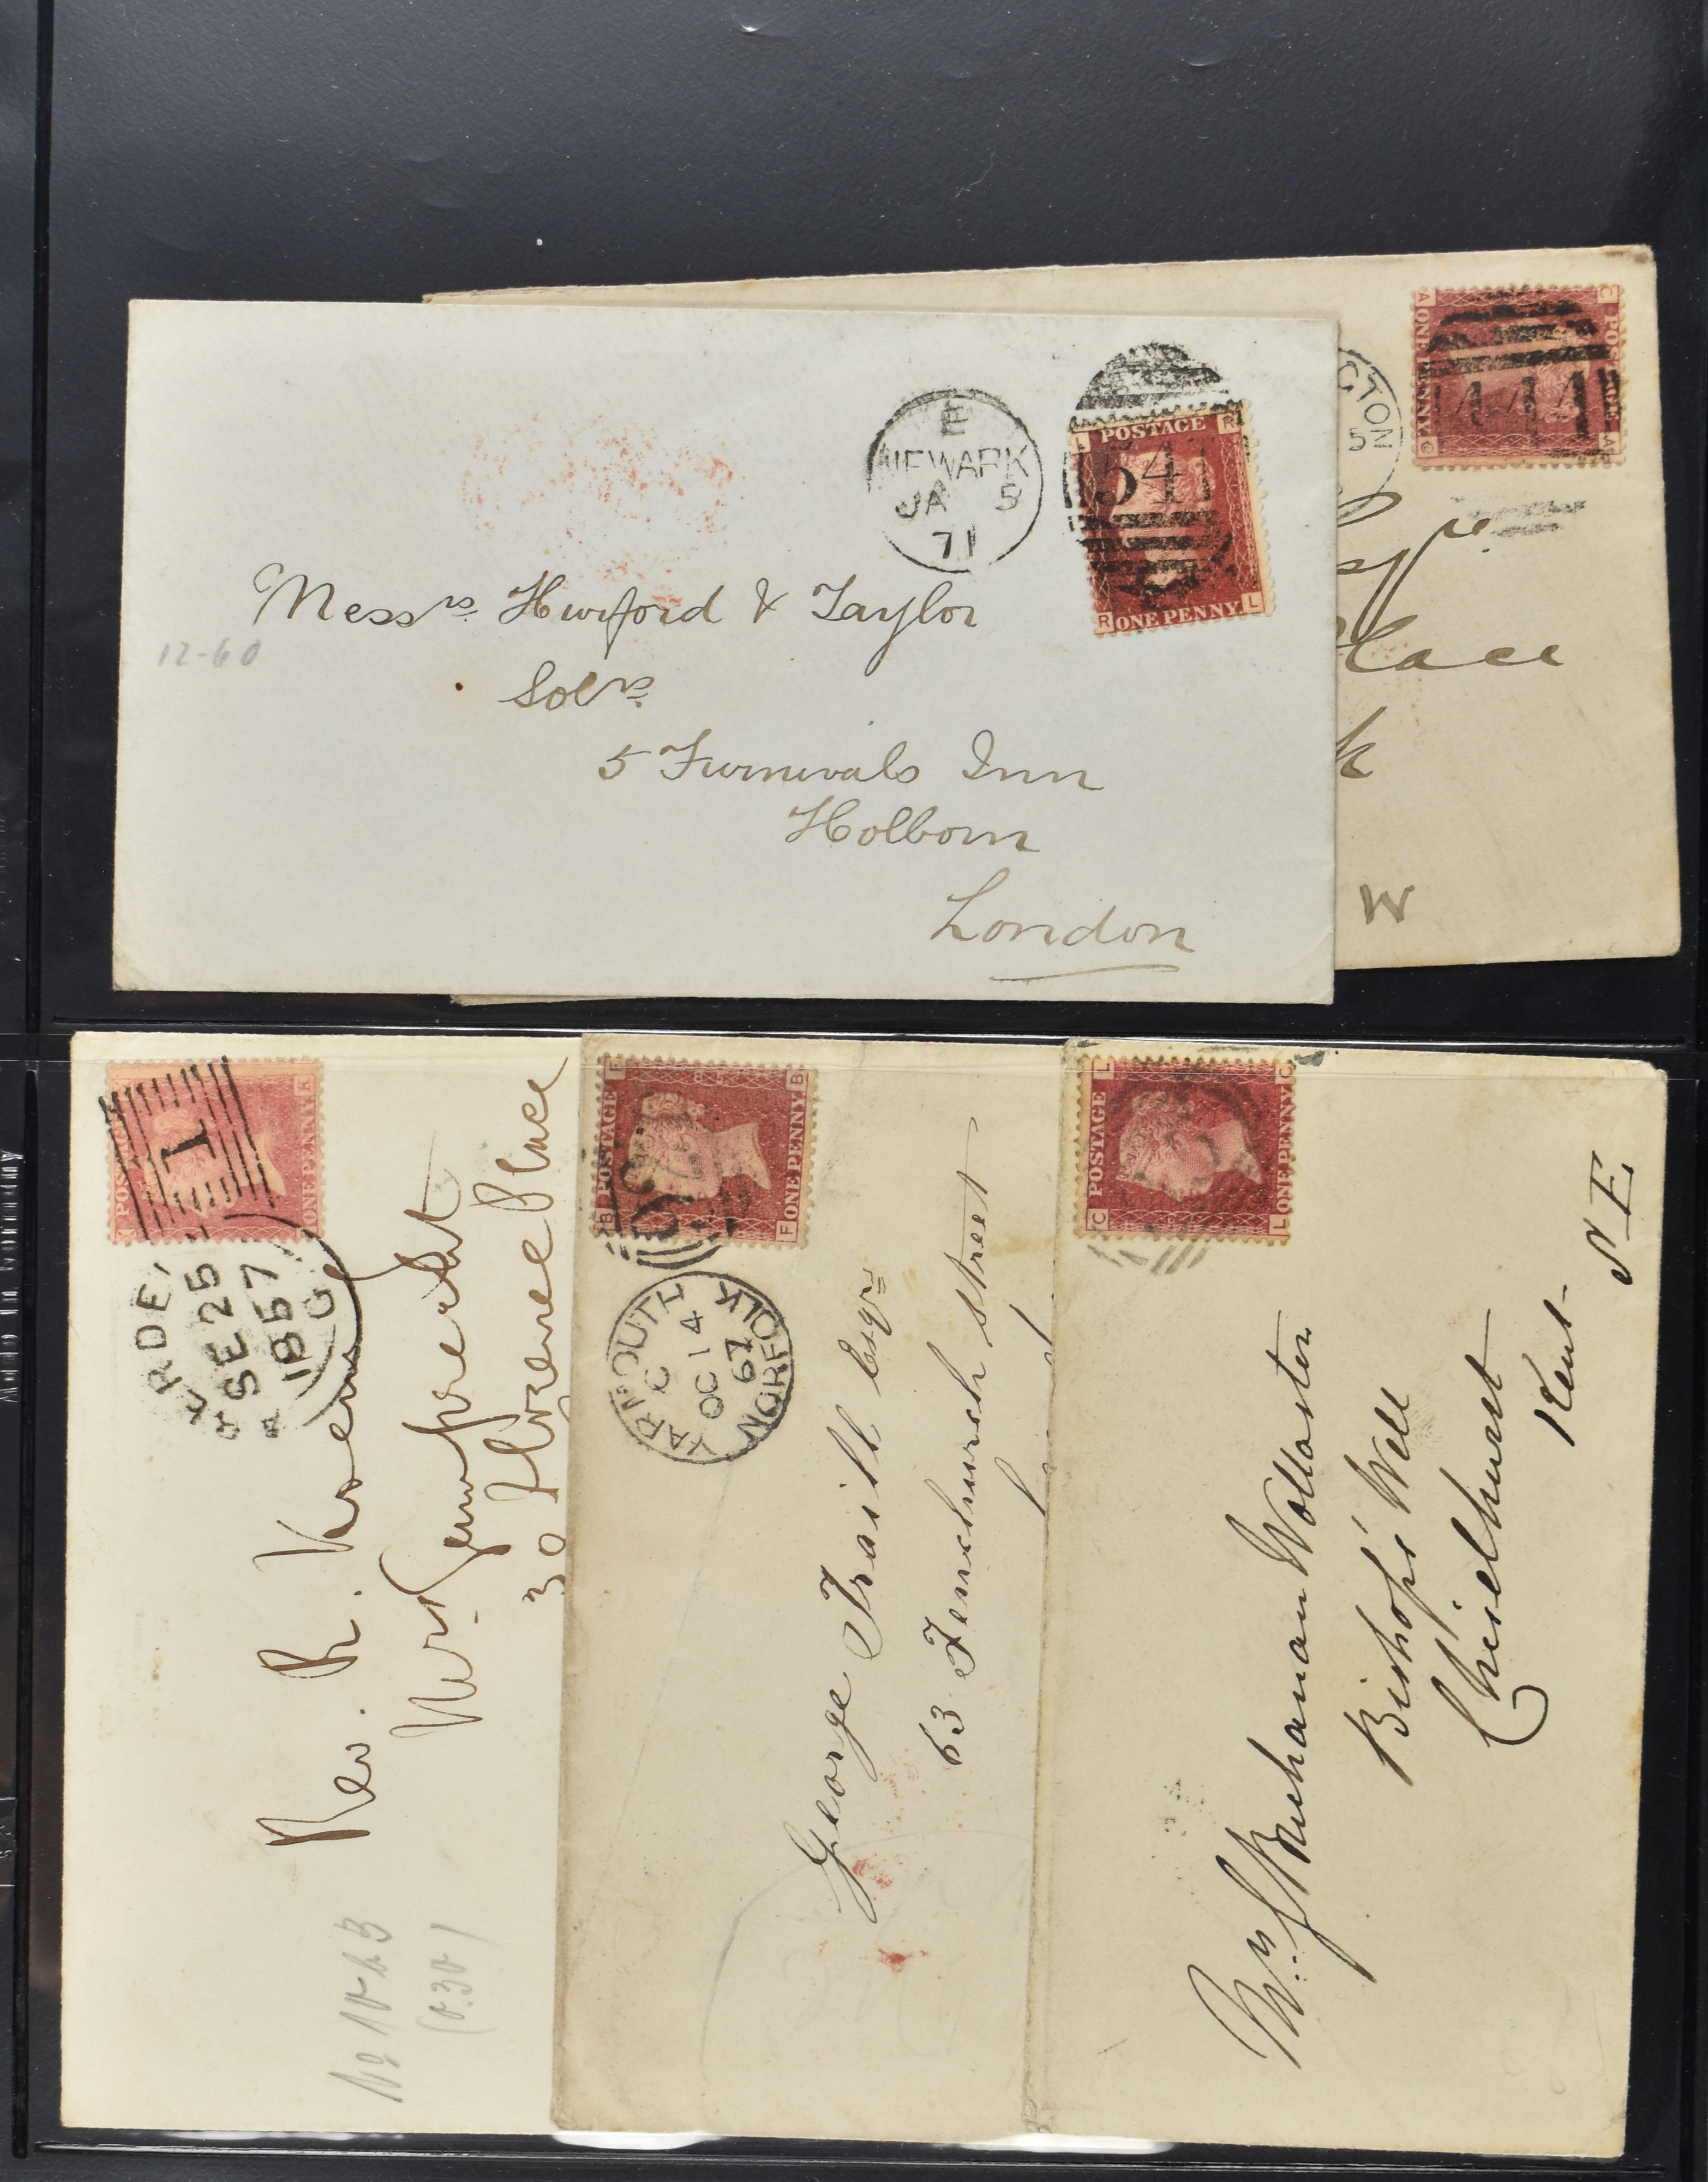 E
NEWARK
JA 5
71
R
POSTAGE
541
R ONE PENNY L
Messrs Hurford & Taylor
Solrs
5 Furnivals Inn
Holborn
London
12-60
C POSTAGE A
A ONE PENNY G
GTON
5
Esqre
Place
k
W
POSTAGE
1
ONE PENNY
SE 25
1857
G
Rev. R.
30 Florence Place
No 10-23
F B
POSTAGE
ONE PENNY
B F
YARMOUTH
C
OC 14
67
NORFOLK
George Traill Esqre
63 Fenchurch street
L C
POSTAGE
ONE PENNY
C L
Mrs Buchanan Wollaston
Bishop's Well
Chiselhurst
Kent
S E